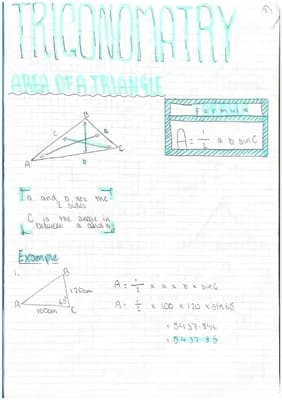 TRIGONOMATRY
AREA OF A TRIANGLE
Formula
A = 1/2 a b sinC
B
c
a
A
C
b
a and b are the
2 sides
C is the angle in
between a and b
Example
1.
B
120cm
A
65
100cm
C
A = 1/2 x a x b x sinC
A = 1/2 x 100 x 120 x sin65
= 5437.846
= 5437.85